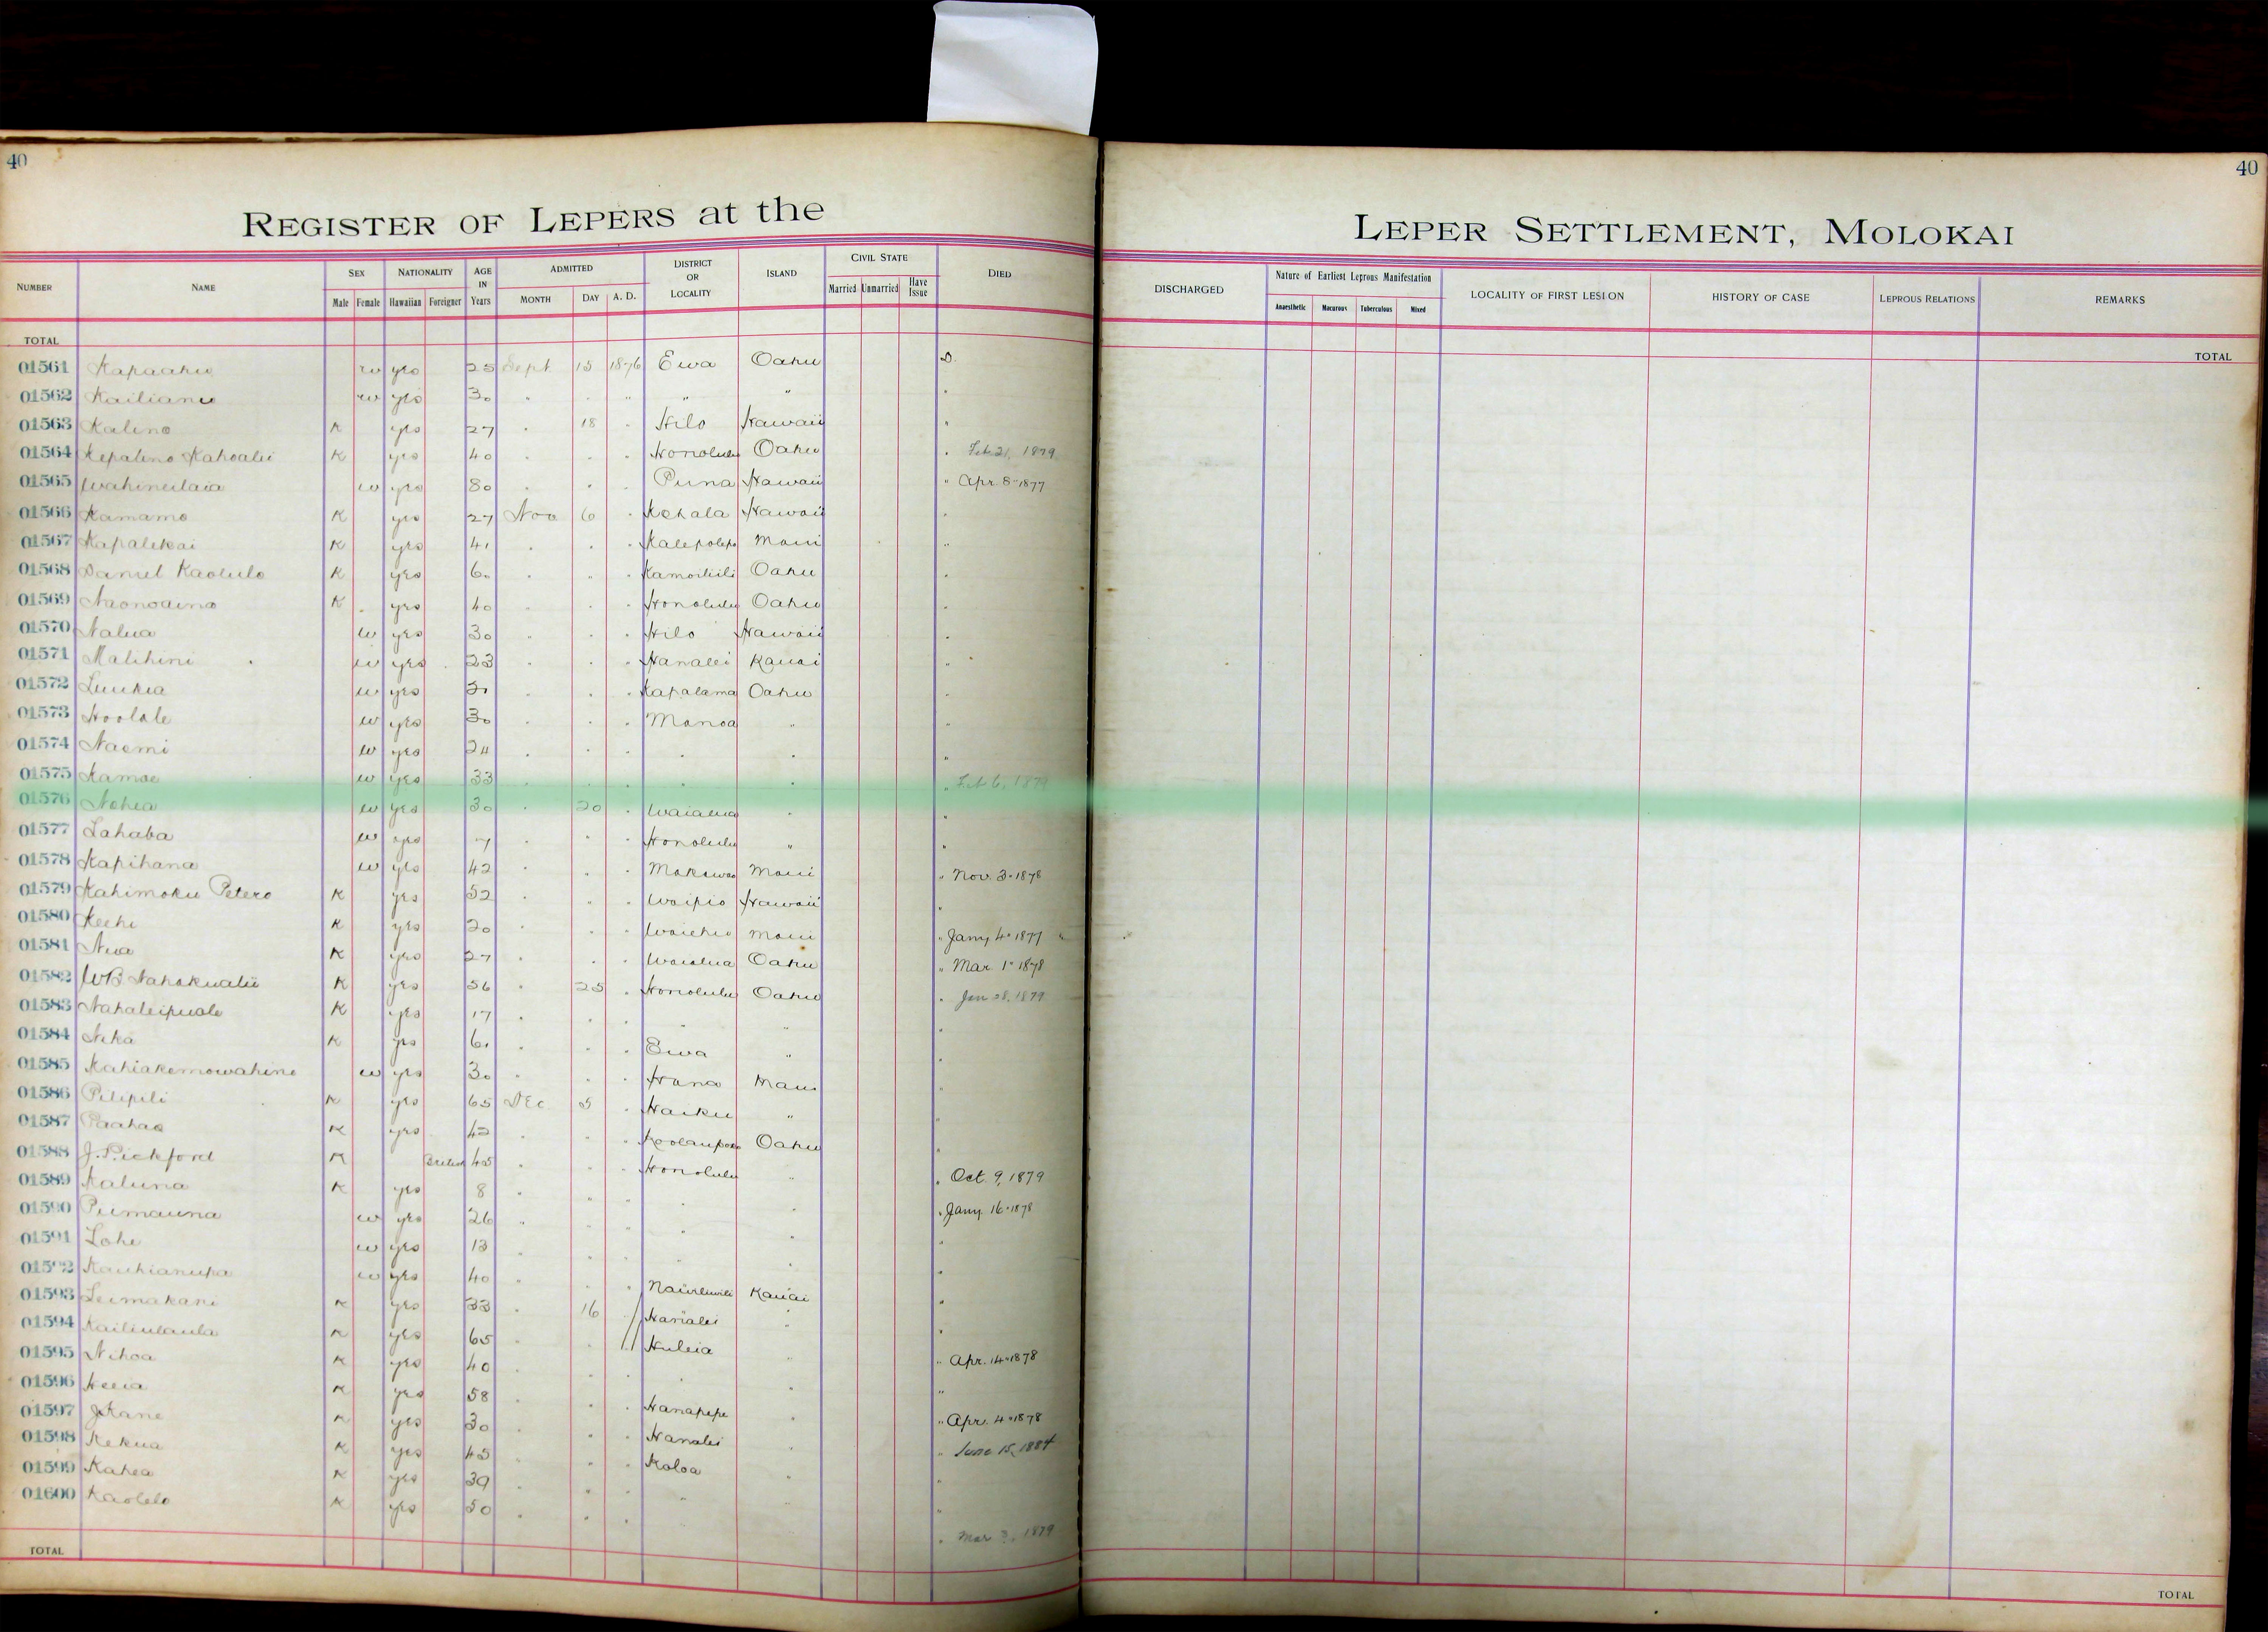 40
REGISTER OF LEPERS at the
NUMBER NAME SEX Male Female NATIONALITY Hawaiian Foreigner AGE IN Years ADMITTED MONTH DAY A. D. DISTRICT OR LOCALITY ISLAND CIVIL STATE Married Unmarried Have Issue DIED
TOTAL
01561 Kapaahu w yes 25 Sept 15 1876 Ewa Oahu D.
01562 Kailianu w yes 30 " " " " " "
01563 Kalino K yes 27 " 18 " Hilo Hawaii "
01564 Kepalino Kahoalii K yes 40 " " " Honolulu Oahu " Feb 21, 1879
01565 Wahineilaia w yes 80 " " " Puna Hawaii " Apr. 8 - 1877
01566 Kamamo K yes 27 Nov 6 " Kohala Hawaii "
01567 Kapalikai K yes 41 " " " Kalepolepo Maui "
01568 Daniel Kaolulo K yes 60 " " " Kamoiliili Oahu "
01569 K yes 40 " " " Honolulu Oahu "
01570 Nalua w yes 30 " " " Hilo Hawaii "
01571 Malihini w yes 23 " " " Hanalei Kauai "
01572 Luukia w yes " " " Kapalama Oahu "
01573 Hoolale w yes 30 " " " Manoa " "
01574 Naomi w yes 24 " " " " " "
01575 Kamae w yes 33 " " " " " " Feb 6, 1879
01576 Nohea w yes 30 " 20 " Waialua " "
01577 Lahaba w yes 7 " " " Honolulu " "
01578 Kapihana w yes 42 " " " Makawao Maui " Nov. 3 - 1878
01579 Kahimoku Petero K yes 52 " " " Waipio Hawaii "
01580 Keehi K yes 20 " " " Waiehu Maui " Jany 4 - 1877 "
01581 K yes 27 " " " Waialua Oahu " Mar. 1 - 1878
01582 WB Nahokualii K yes 56 " 25 " Honolulu Oahu " Jan 28, 1879
01583 Nahaleipuole K yes 17 " " " " " "
01584 Nika K yes 61 " " " Ewa " "
01585 Kahiakemowahine w yes 30 " " " Hana Maui "
01586 Pilipili K yes 65 Dec 5 " Haiku " "
01587 Paahao K yes 42 " " " Koolaupoko Oahu "
01588 J. Pickford K British 45 " " " Honolulu " " Oct. 9, 1879
01589 Kaluna K yes 8 " " " " " " Jany. 16 - 1878
01590 Puimauna w yes 26 " " " " " "
01591 Lohe w yes 13 " " " " "
01592 Kauhianupa w yes 40 " " " Nawiliwili Kauai "
01593 Leimakani K yes 33 " 16 Hanalei " "
01594 Kailiulaula K yes 65 " " Huleia " " Apr. 14 - 1878
01595 Nihoa K yes 40 " " " " " "
01596 Heeia K yes 58 " " " Hanapepe " " Apr. 4 - 1878
01597 J Kane K yes 30 " " " Hanalei " " June 15, 1884
01598 Kekua K yes 45 " " " Koloa " "
01599 Kahea K yes 39 " " " " " "
01600 Kaolelo K yes 50 " " " " Mar 3, 1879
TOTAL
40
LEPER SETTLEMENT, MOLOKAI
DISCHARGED Nature of Earliest Leprous Manifestation Anaesthetic Macurous Tuberculous Mixed LOCALITY OF FIRST LESION HISTORY OF CASE LEPROUS RELATIONS REMARKS
TOTAL
TOTAL